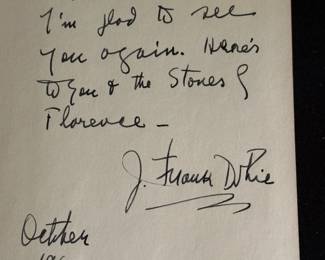 I'm glad to see
you again. Here's
to you & the Stones of
Florence —
J. Frank Dobie
October